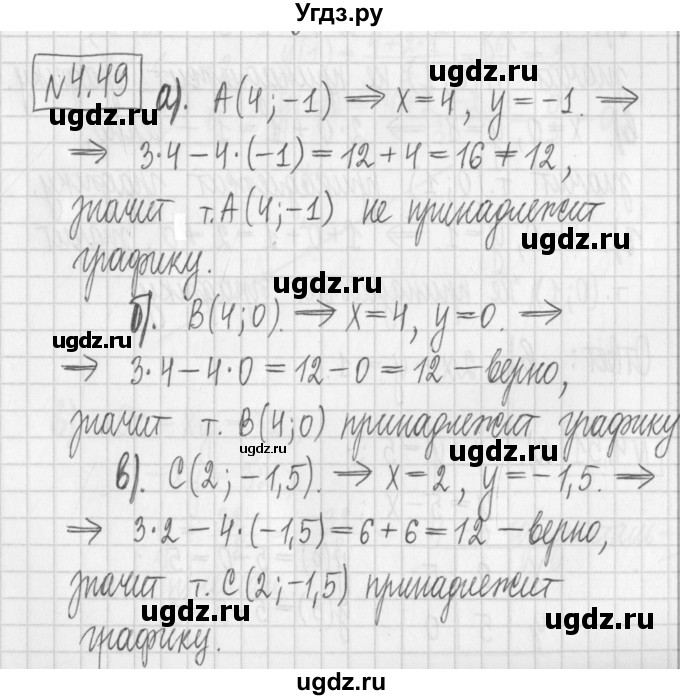 Угдз.ру
№4.49 а). A(4;-1) ⇒ x=4, y=-1. ⇒
⇒ 3·4-4·(-1)=12+4=16≠12,
значит т.A(4;-1) не принадлежит
графику.
б). B(4;0). ⇒ x=4, y=0. ⇒
⇒ 3·4-4·0=12-0=12 - верно,
значит т. B(4;0) принадлежит графику
в). C(2;-1,5). ⇒ x=2, y=-1,5. ⇒
⇒ 3·2-4·(-1,5)=6+6=12 - верно,
значит т. C(2;-1,5) принадлежит
графику.
ugdz.ru
ugdz.ru
ugdz.ru
ugdz.ru
ugdz.ru
ugdz.ru
ugdz.ru
ugdz.ru
ugdz.ru
ugdz.ru
ugdz.ru
ugdz.ru